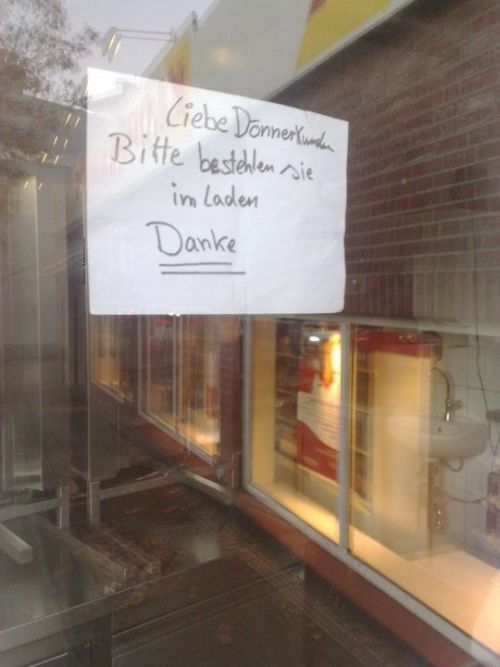 Liebe Dönnerkunden
Bitte bestehlen sie
im Laden
Danke